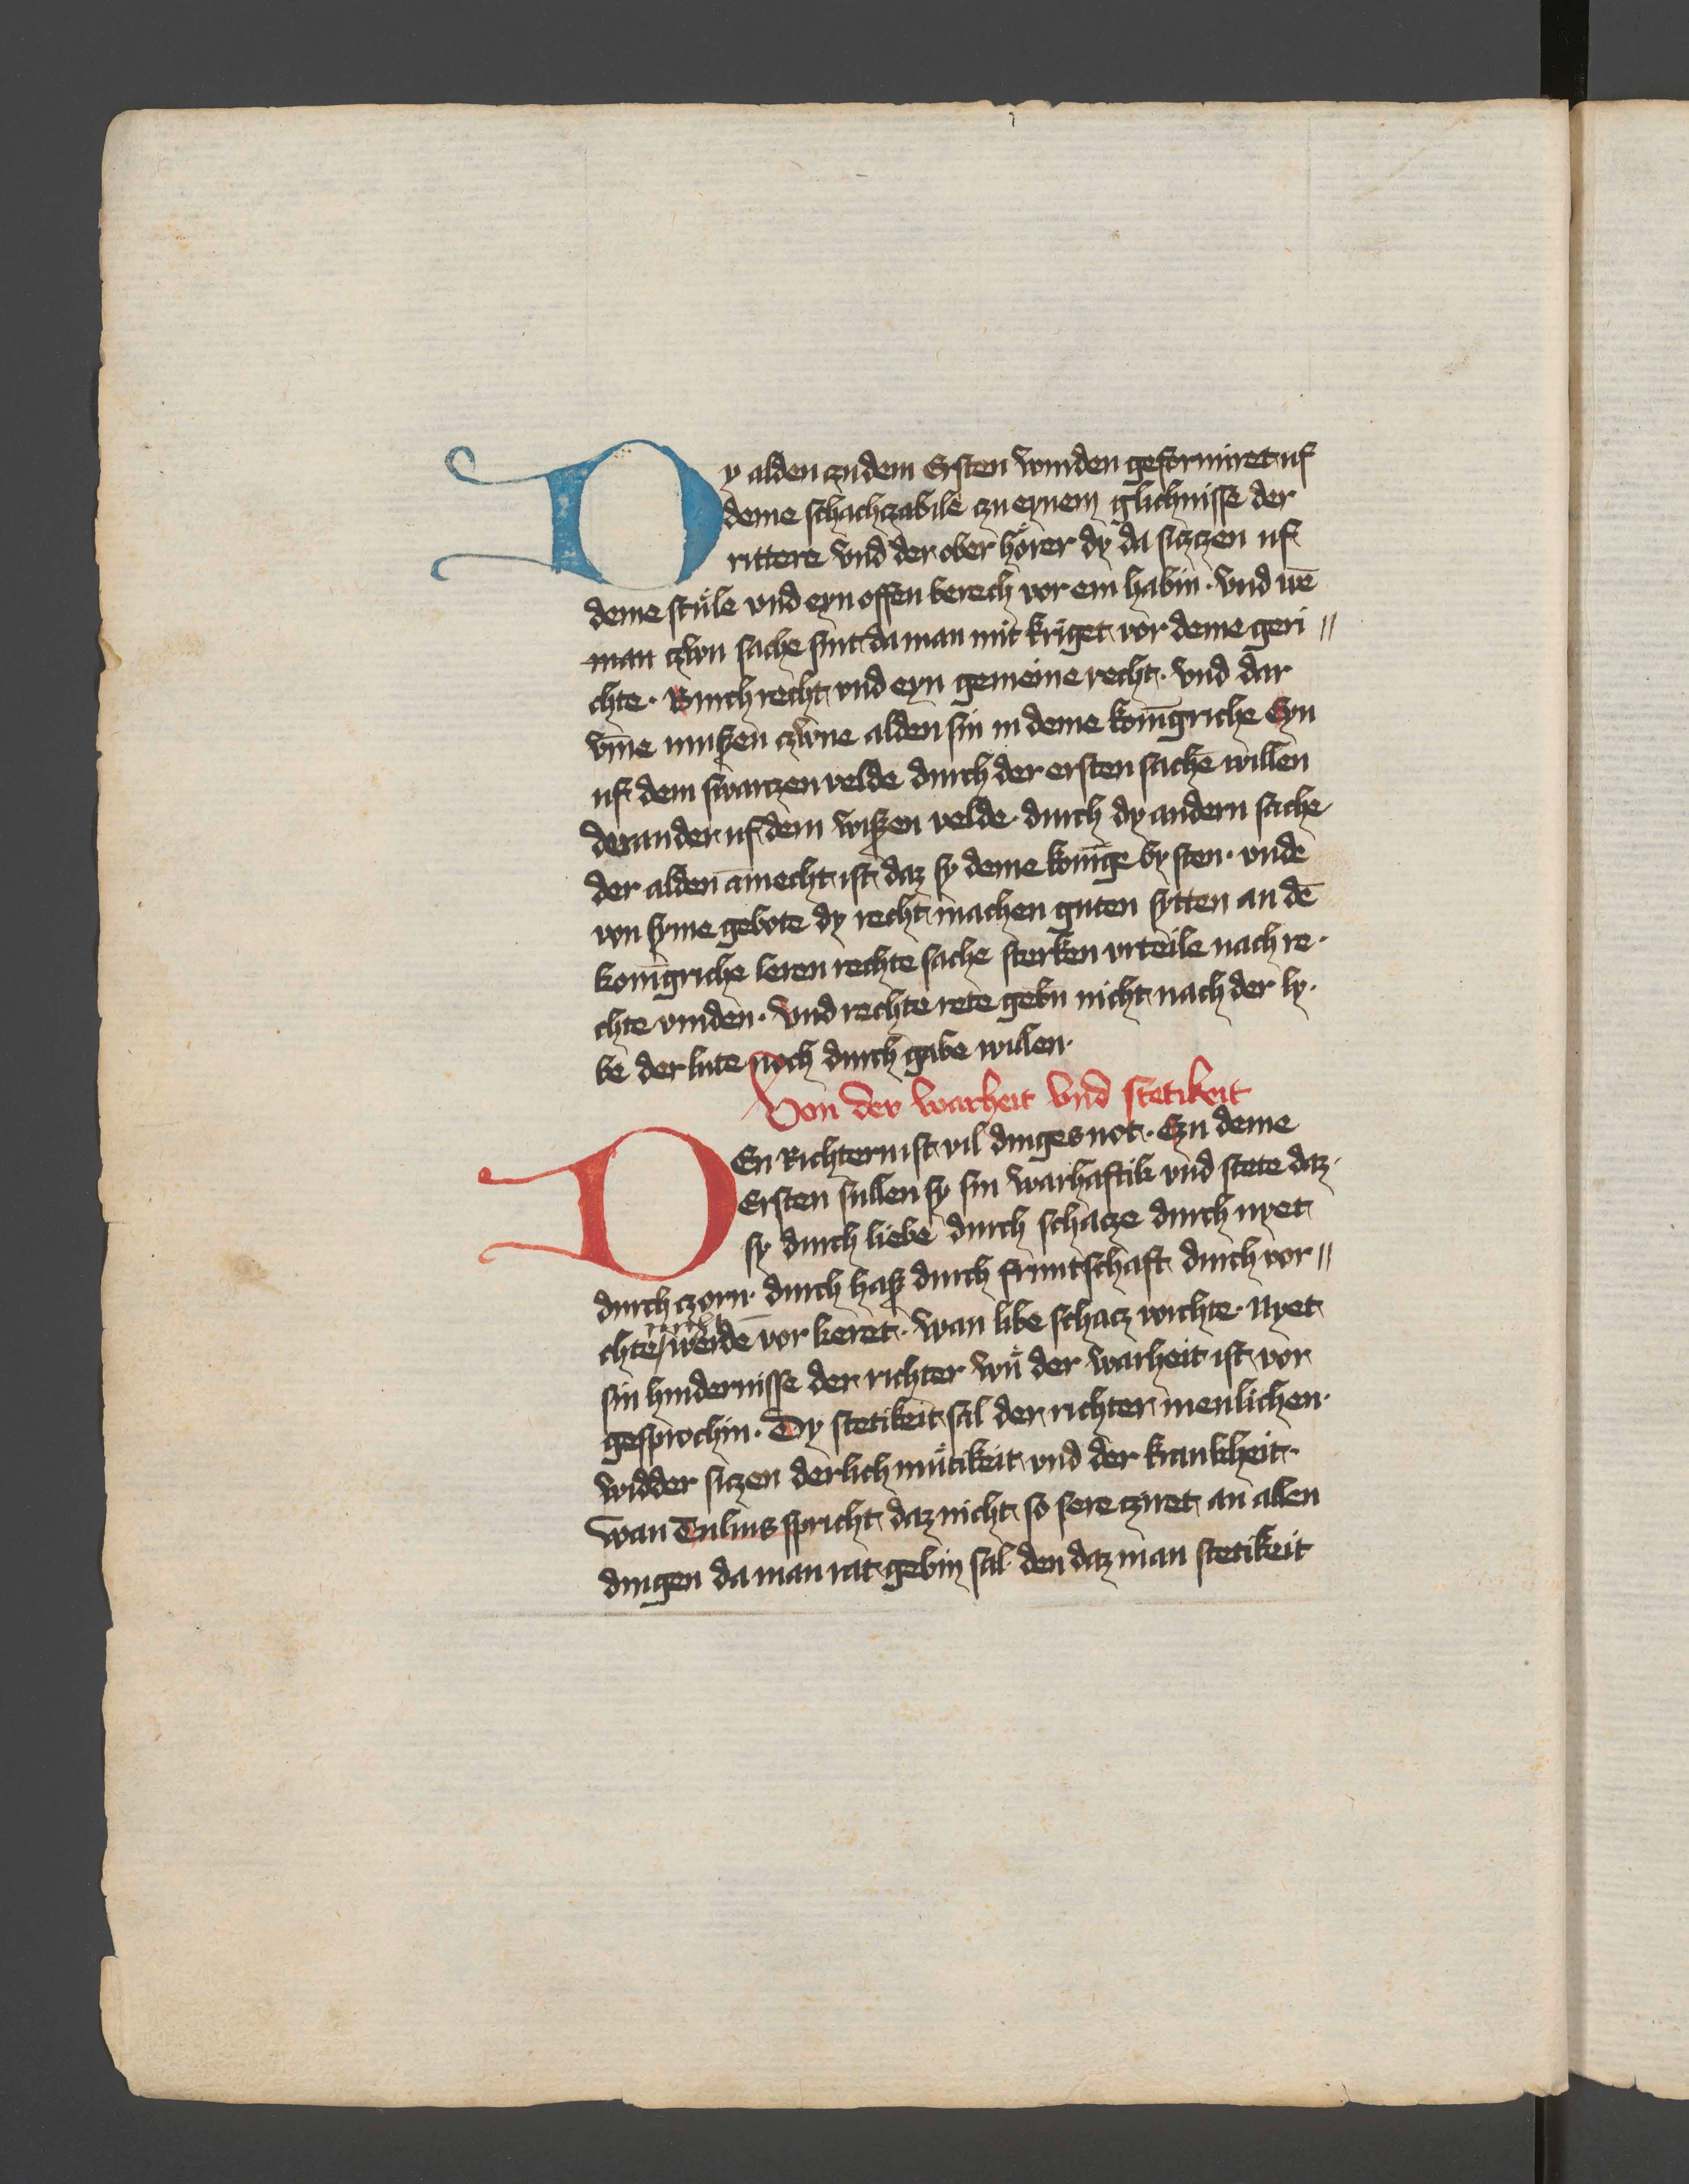 Dy alden czu dem Ersten wurden geformiret uf
deme schachczabile czu eynem glichnisse der
rittere vnd der ober hörer dy da siczczen uf
deme stůle vnd eyn offen berech vor em habin · vnd uē
man czwu sache sint da man mit kriget vor deme geri //
chte · Burch recht vnd eyn gemeine recht · vnd dar
vm̄e mußen czwene alden sin in deme konīgriche Eyn
uf dem swarczen velde durch der ersten sache willen
der ander uf dem wißen velde durch dy andern sache
der alden am̄echt ist daz sy deme konīge by sten · vnde
von syme gebote dy recht machen guten sytten an dē
konīgriche leren rechte sache sterken vrteile nach re ·
chte vinden · vnd rechte rete gebn̄ nicht nach der ly ·
be der lute noch durch gabe willen ·
Von der warheit vnd stetikeit
DEn Richtern ist vil dinges not · Czu deme
Ersten sullen sy sin warhaftik vnd stete daz ·
sy durch liebe durch schacze durch nyet
durch czorn · durch haß durch fruntschaft durch vor //
chte nicht werdē vor keret · wan libe schacz vorchte · Nyet
sin hindernisse der richter wū der warheit ist vor
gesprochin · Dy stetikeit sal der richter menlichen ·
widder siczen der lichmůtikeit vnd der krankheit ·
wan Tulius spricht daz nicht so sere cziret an allen
dingen da man rat gebin sal den daz man stetikeit